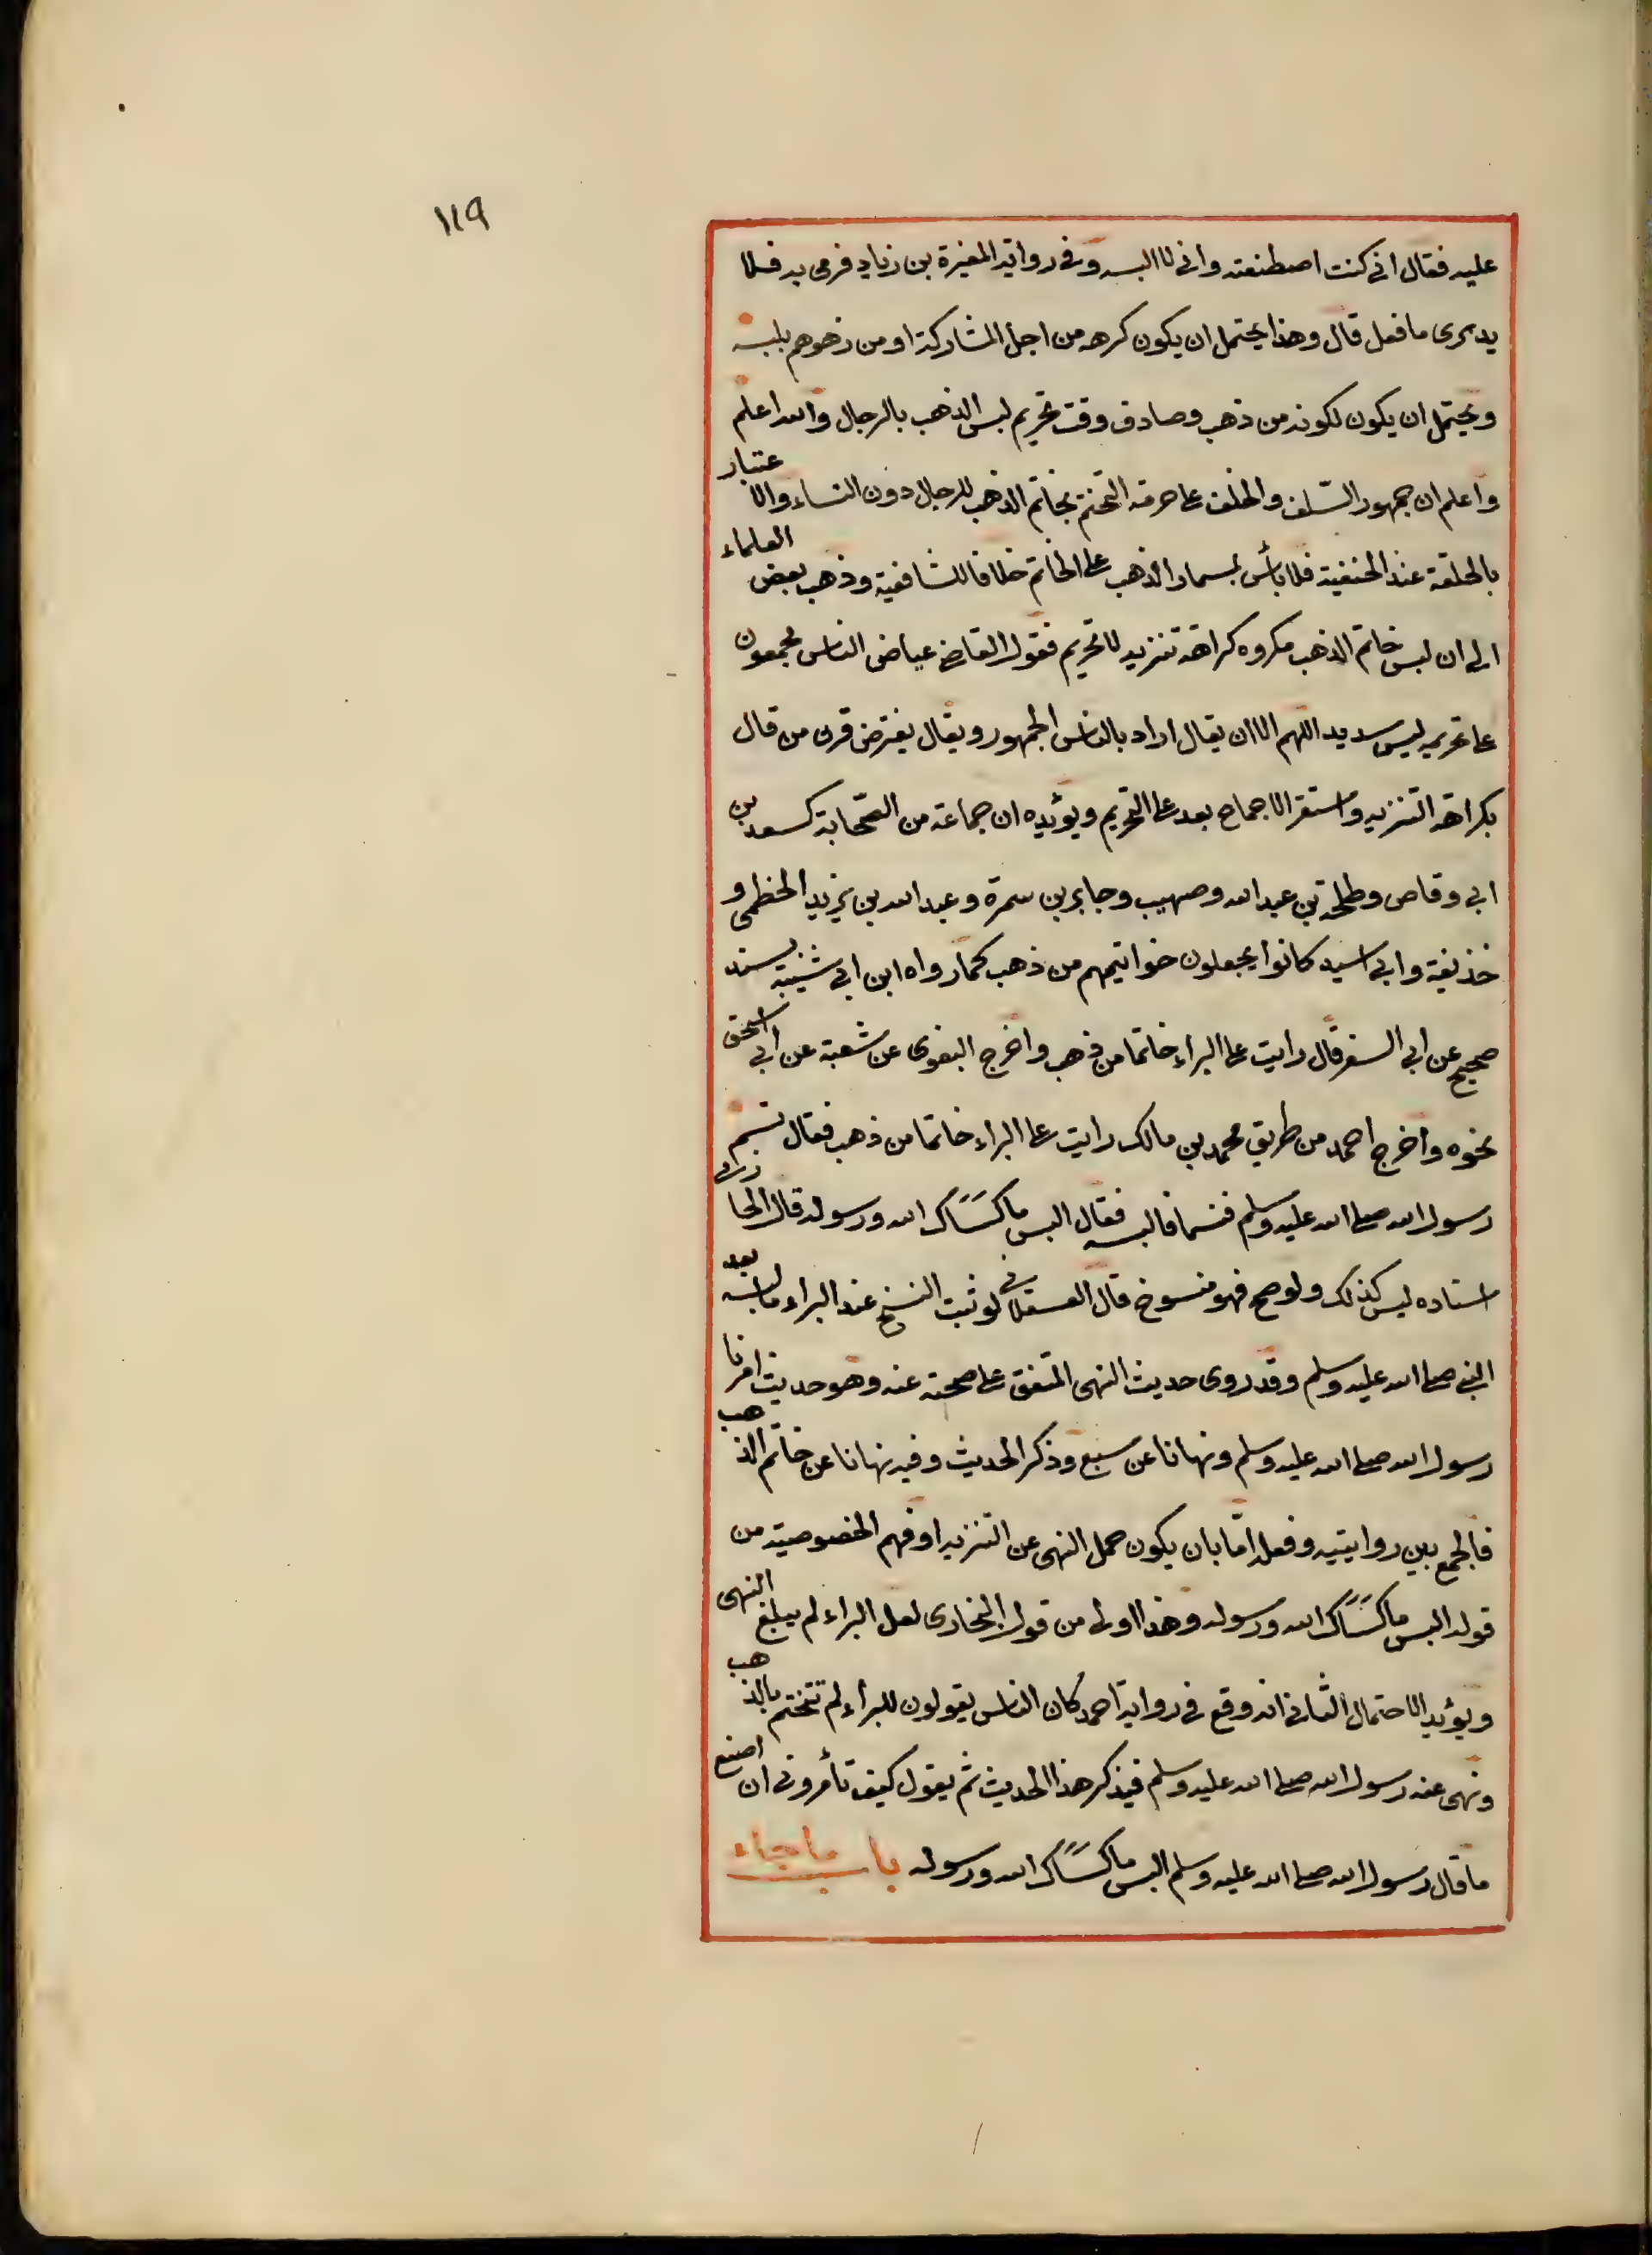 ١١٩
عليه فقال اني كنت اصطنعته واني لا البسه وفي رواية المغيرة بن زياد فرمى به فلا
يدرى ما فعل قال وهذا يحتمل ان يكون كرهه من اجل المشاركة او من زهوهم بلبسه
ويحتمل ان يكون لكونه من ذهب وصادف وقت تحريم لبس الذهب بالرجال والله اعلم
واعلم ان جمهور السّلف والخلف على حرمة التختم بخاتم الذهب للرجال دون النساء والاعتبار
بالحلقة عند الحنفية فلا بأس بمسمار الذهب على الخاتم خلافا للشافعية وذهب بعض العلماء
الى ان لبس خاتم الذهب مكروه كراهة تنزيه لا تحريم فقول القاضي عياض الناس مجمعون
على تحريمه ليس سديد اللهم الا ان يقال اراد بالناس الجمهور ويقال يقترض قرن من قال
بكراهة التنزيه واستقر الاجماع بعد على التحريم ويؤيده ان جماعة من الصّحابة كسعد بن
ابي وقاص وطلحة بن عبد الله وصهيب وجابر بن سمرة وعبد الله بن يزيد الخطمى و
خذيفة وابي اسيد كانوا يجعلون خواتيمهم من ذهب كما رواه ابن ابي شيبة بسند
صحيح عن ابي السفر قال رايت على البراء خاتما من ذهب واخرج البغوى عن شعبة عن ابي اسحق
نحوه واخرج احمد من طريق محمد بن مالك رايت على البراء خاتما من ذهب فقال قسم
رسول الله صلى الله عليه وسلم قسما فالبسنيه فقال البس ما كسَاك الله ورسوله قال الحازمي
اسناده ليس كذلك ولو صح فهو منسوخ قال العسقلاني لو ثبت النسخ عند البراء ما لبسه بعد
النبي صلى الله عليه وسلم وقد روى حديث النهى المتفق على صحته عنه وهو حديث امرنا
رسول الله صلى الله عليه وسلم ونهانا عن سبع وذكر الحديث وفيه نهانا عن خاتم الذهب
فالجمع بين روايتيه وفعله امّا بان يكون حمل النهى عن التنزيه او فهم الخصوصية من
قوله البس ما كسَاك الله ورسوله وهذا اولى من قول البخارى لعل البراء لم يبلغ النهى
ويؤيد الاحتمال الثانى انه وقع فى رواية احمد كان الناس يقولون للبراء لم تتختم بالذهب
ونهى عنه رسول الله صلى الله عليه وسلم فيذكر هذا الحديث ثم يقول كيف تأمروني ان اصنع
ما قال رسول الله صلى الله عليه وسلم البس ما كسَاك الله ورسوله باب ما جاء